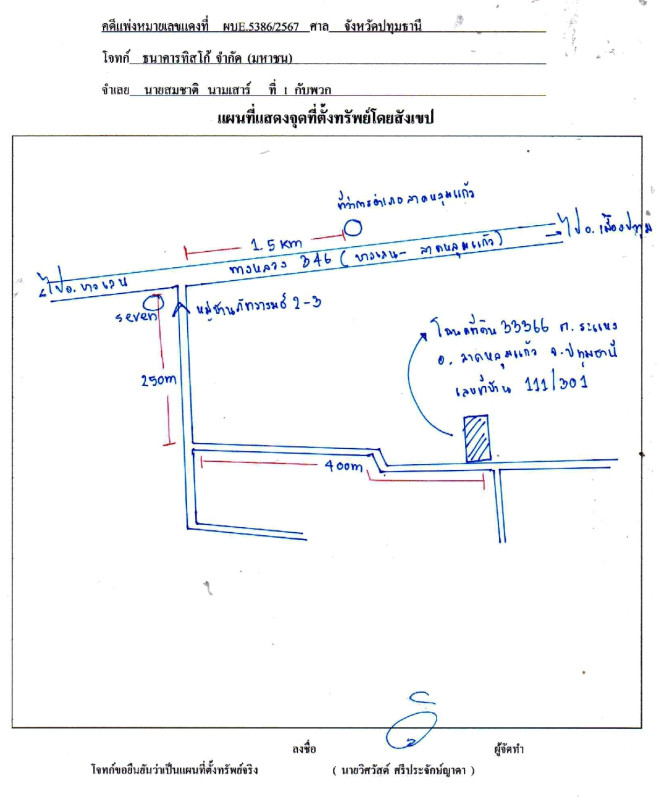 คดีแพ่งหมายเลขแดงที่ ผบE.5386/2567 ศาล จังหวัดปทุมธานี
โจทก์ ธนาคารทิสโก้ จำกัด (มหาชน)
จำเลย นายสมชาติ นามเสาร์ ที่ 1 กับพวก
แผนที่แสดงจุดที่ตั้งทรัพย์โดยสังเขป
ที่ว่าการอำเภอลาดหลุมแก้ว
1.5 KM
ไป อ. เมืองปทุม
ทางหลวง 346 (บางเลน - ลาดหลุมแก้ว)
ไป อ. บางเลน
seven
หมู่บ้านภัทราวรมย์ 2-3
โฉนดที่ดิน 33366 ต. ระแหง
อ. ลาดหลุมแก้ว จ. ปทุมธานี
เลขที่บ้าน 111/301
250m
400m
ลงชื่อ ผู้จัดทำ
โจทก์ขอยืนยันว่าเป็นแผนที่ตั้งทรัพย์จริง ( นายวิศวัสต์ ศรีประจักษ์ญาดา )